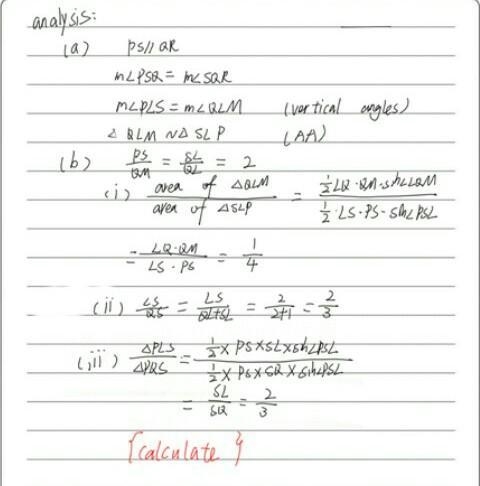 analysis:
(a) PS// QR
m∠PSQ = m∠SQR
m∠PLS = m∠QLM (vertical angles)
△ QLM ∽△ SLP (AA)
(b) PS/QM = SL/QL = 2
(i) area of △QLM / area of △SLP = ½LQ·QM·sin∠LQM / ½·LS·PS·sin∠PSL
= LQ·QM / LS·PS = 1/4
(ii) LS/QS = LS/QL+SL = 2/2+1 = 2/3
(iii) △PLS/△PQS = ½×PS×SL×sin∠PSL / ½×PS×SQ×sin∠PSL
= SL/SQ = 2/3
{calculate}